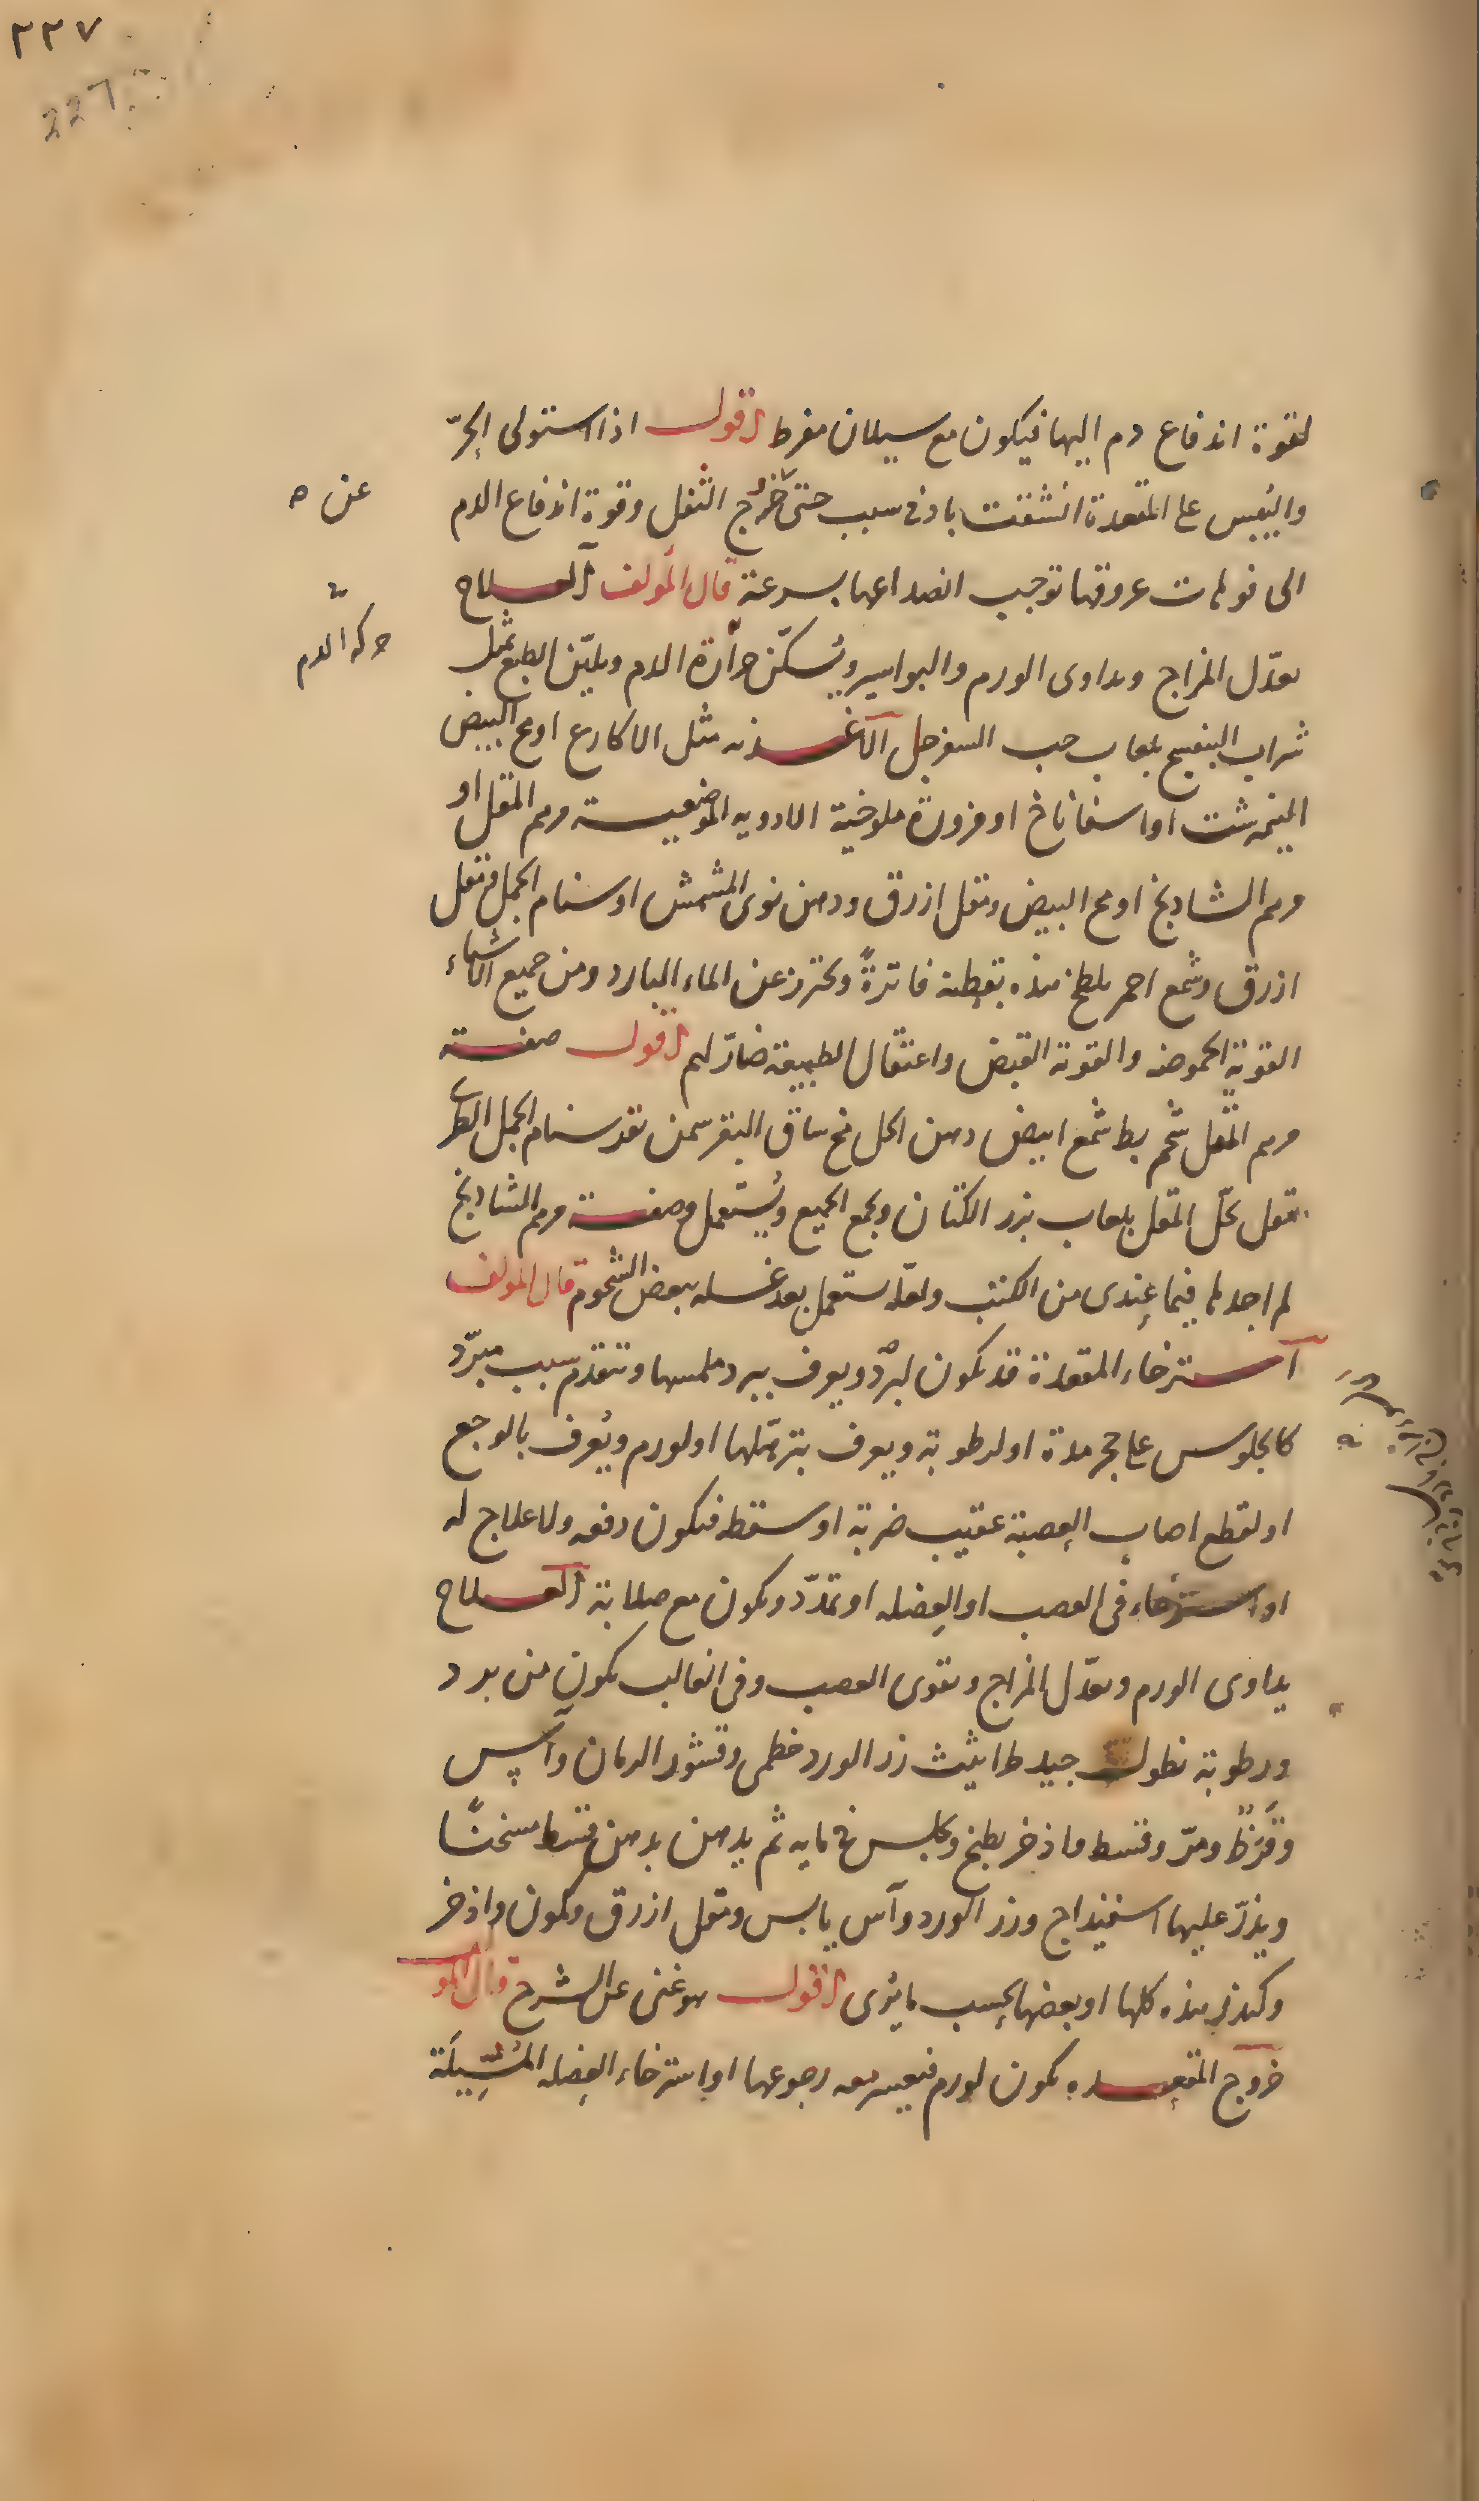 ٢٢٧
227
لقوة اندفاع دم اليها فيكون مع سيلان مفرط اقول اذا استولى الحرّ
واليُبس على المقعدة انشقت بادنى سبب حتى خرج الثفل وقوة اندفاع الدم
عن
الى فوهات عروقها توجب انصداعها بسرعة قال المؤلف العلاج
يعدّل المزاج ويداوى الورم والبواسير ويُسكّن حرارة الدم ويليّن الطبع بمثل
حركة الدم
شراب البنفسج بلعاب حب السفرجل الاغذيه مثل الاكارع او مح البيض
النيمرشت او اسفاناخ او مزورة ملوخية الادويه الموضعية مرهم المقل او
مرهم الشادنج او مح البيض ومقل ازرق ودهن نوى المشمش او سنام الجمل ومقل
ازرق وشمع احمر يلطخ هذه بقطنه فاترةً ويحترز عن الماء البارد ومن جميع الاشياء
القوية الحموضه والقوية القبض واعتقال الطبيعة ضارّ لهم اقول صفة
مرهم المقل شحم بط شمع ابيض دهن الخل مخ ساق البقر سمن بقر سنام الجمل الطرى
مقل يحلّ المقل بلعاب بزر الكتان ويجمع الجميع ويُستعمل وصفة مرهم الشادنج
لم اجدها فيما عندى من الكتب ولعلّه يستعمل بعد غسله ببعض الشحوم قال المولف
استرخاء المقعدة قد يكون لبردٍ ويعرف ببرد ملمسها وتقدم سبب مبرّد
كالجلوس على حجر مدة او لرطوبة ويعرف بترهّلها او لورم ويُعرف بالوجع
او لقطع اصاب العصبة عقيب ضربة او سقطه فيكون دفعه ولا علاج له
او استرخاء فى العصب او العضله او تمدّد ويكون مع صلابة العلاج
يداوى الورم ويعدّل المزاج ويقوى العصب وفى الغالب يكون من برد
ورطوبة نطول جيد طراثيث زر الورد خطمى وقشور الرمان وآس
وقَرَظ ومرّ وقسط واذخر يطبخ ويجلس فى مايه ثم يدهن بدهن قسط مسخنًا
ويذرّ عليها اسفيداج وزر الورد وآس يابس ومقل ازرق وكمون واذخر
وكندر هذه كلها او بعضها بحسب ما يُرى اقول هو غنى عن الشرح قال المو
خروج المقعده يكون لورم فيعسر معه رجوعها او استرخاء العضله المُشِيلَة